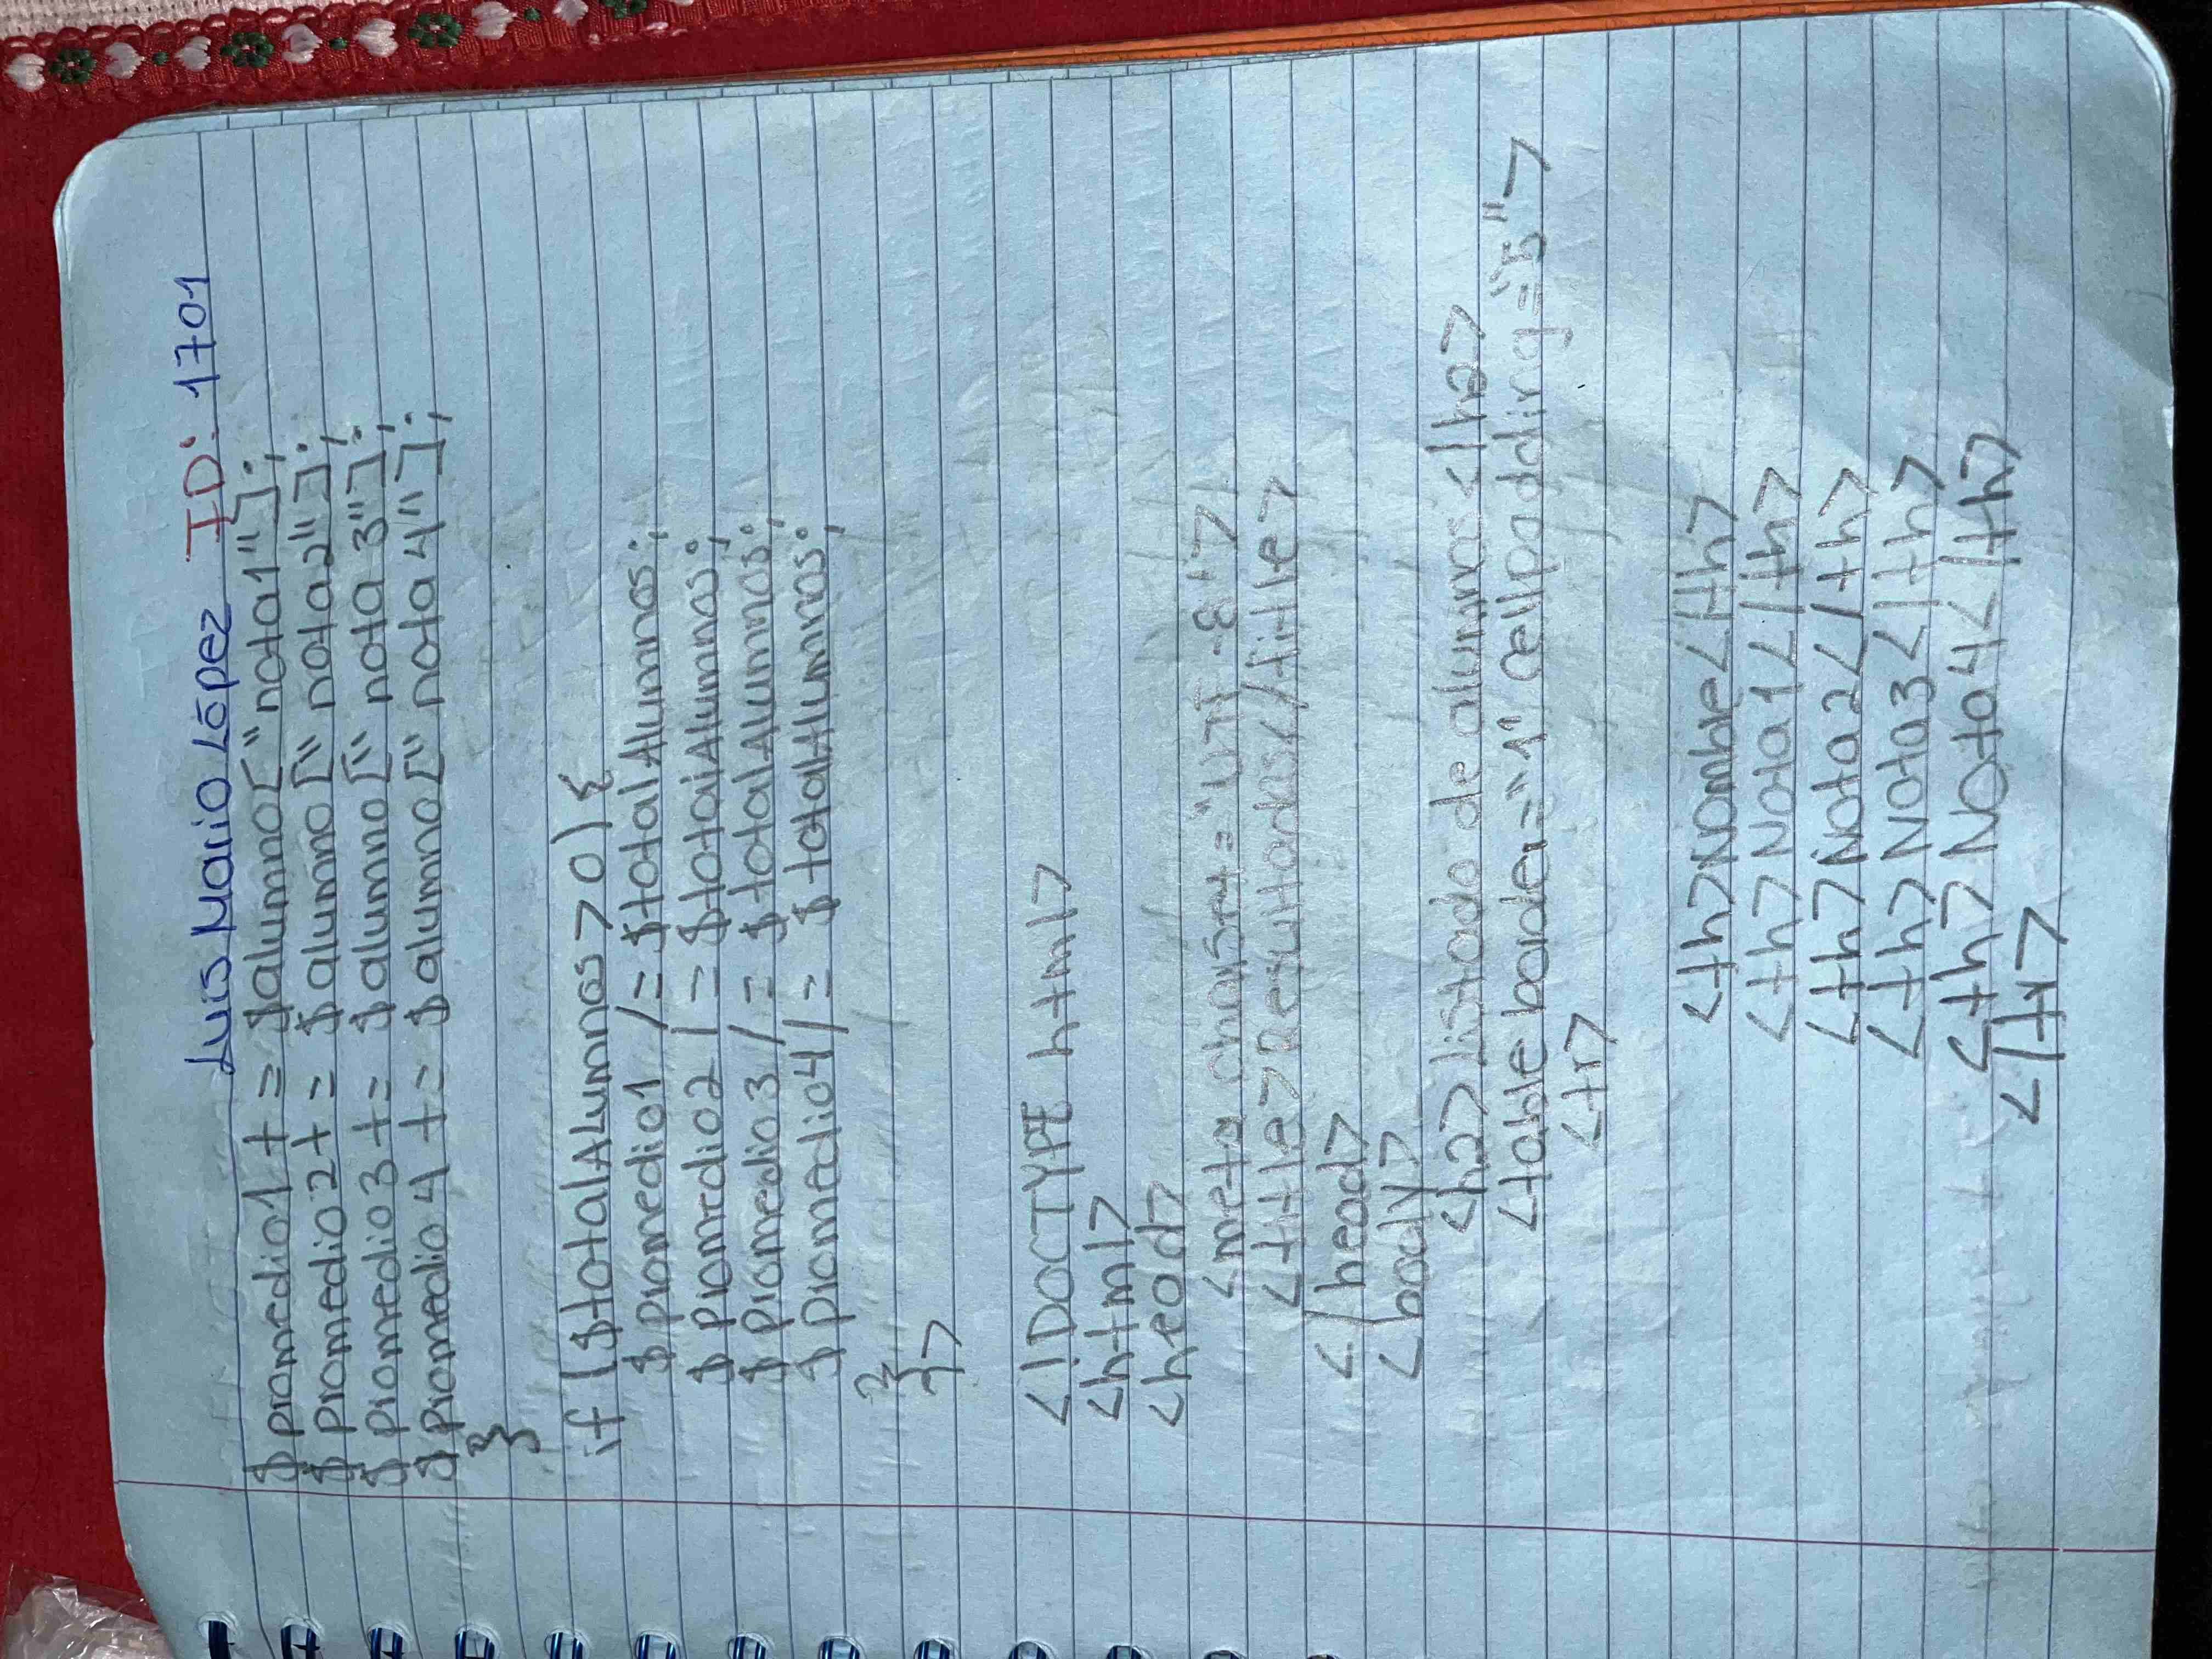 Luis Mario López ID: 1701
$promedio1 += $alumno["nota1"];
$promedio2 += $alumno["nota2"];
$promedio3 += $alumno["nota3"];
$promedio4 += $alumno["nota4"];
}
if ($totalAlumnos > 0) {
$promedio1 /= $totalAlumnos;
$promedio2 /= $totalAlumnos;
$promedio3 /= $totalAlumnos;
$promedio4 /= $totalAlumnos;
}
?>
<!DOCTYPE html>
<html>
<head>
<meta charset="UTF-8">
<title>Resultados</title>
</head>
<body>
<h2>listado de alumnos</h2>
<table border="1" cellpadding="5">
<tr>
<th>Nombre</th>
<th>Nota1</th>
<th>Nota2</th>
<th>Nota3</th>
<th>Nota4</th>
</tr>